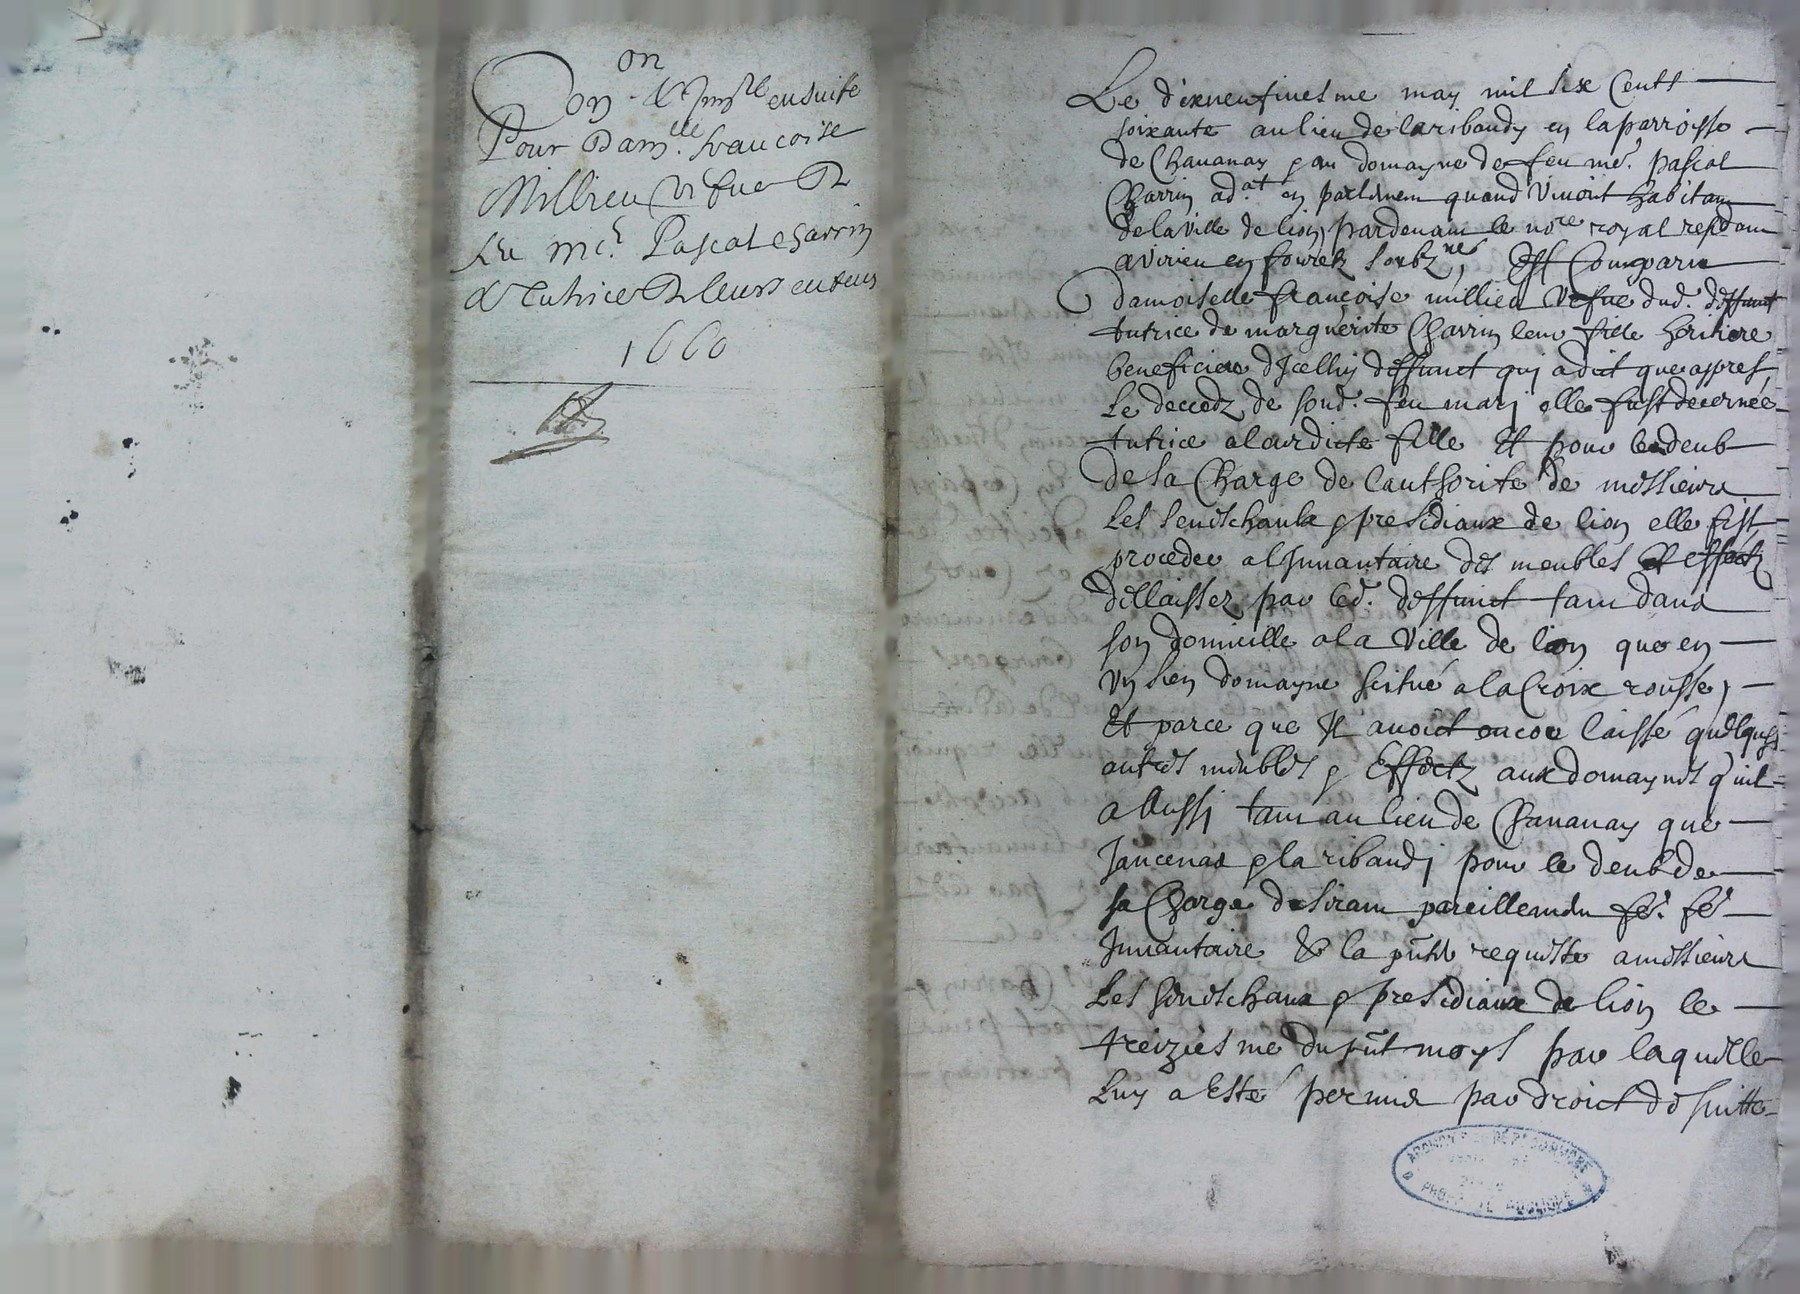 on
Don & Jnv.re ensuite
Pour Dam.lle francoise
Millieu vefue De
feu Me. Pascal Charrin
& Tutrice De leurs enfens
1660
Le dixneufviesme may mil six Cents
soixante au lieu de la ribaudy en la parroisse
de Chauanay & au domayne de feu me. pascal
Charrin ad.at en parlement quand viuoit habitant
de la ville de lion, pardeuant le no.re royal resdant
a virieu en fourestz soubz.né, Est Comparue
damoiselle françoise millieu vefue dud. deffunct
tutrice de marguerite Charrin leur fille heritiere
beneficiere d'Jcelluy deffunct quj a dict que appres
le deccedz de sond. feu marj elle fust decernée
tutrice a laditte fille Et pour le deub
de sa Charge de l'authorite de messieurs
les seneschaulx & presidiaux de lion elle fist
proceder a l'Jnuantaire des meubles et effectz
dellaissez par led. deffunct tant dans
son domicille a la ville de lion que en
vn sien domayne scitué a la Croix rousse,
Et parce que Jl auoict encor laissé quelques
autres meubles & Effectz aux domaynes qu'il
a Aussj tant au lieu de Chauanay que
Jancenas & la ribaudj pour le deub de
sa Charge desirant pareillement
Jnuantaire requeste a messieurs
Les seneschaux & presidiaux de lion le
treiziesme du pnt moys par laquelle
luy a Esté permis par droict de suitte